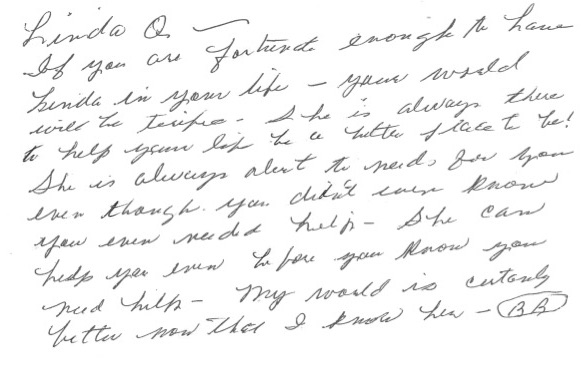 Linda Q —
If you are fortunate enough to have
Linda in your life – your world
will be terrific – She is always there
to help your life be a better place to be!
She is always alert to needs for you
even though you didn't even know
you even needed help – She can
help you even before you know you
need help – My world is certainly
better now that I know her – BB